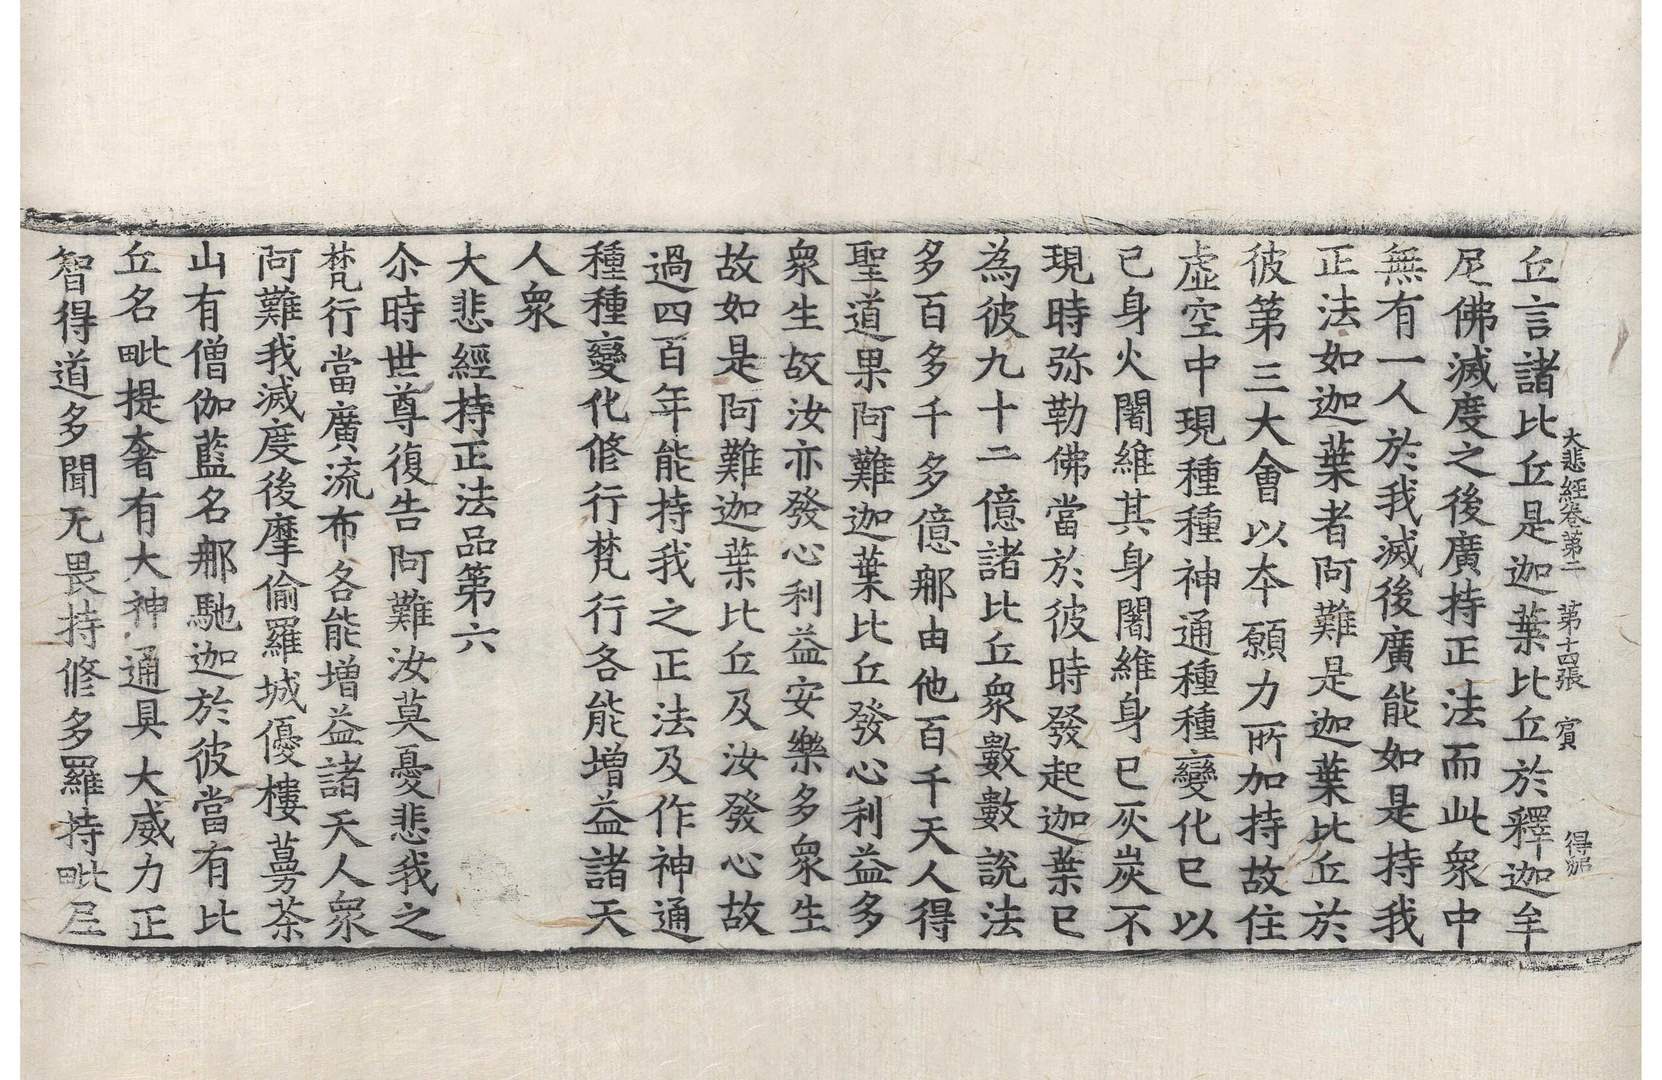 大悲經卷第二 第十四張 賓 得
丘言諸比丘是迦葉比丘於釋迦牟
尼佛滅度之後廣持正法而此衆中
無有一人於我滅後廣能如是持我
正法如迦葉者阿難是迦葉比丘於
彼第三大會以夲願力所加持故住
虛空中現種種神通種種變化已以
已身火闍維其身闍維身已灰炭不
現時弥勒佛當於彼時發起迦葉已
為彼九十二億諸比丘衆數數說法
多百多千多億那由他百千天人得
聖道果阿難迦葉比丘發心利益多
衆生故汝亦發心利益安樂多衆生
故如是阿難迦葉比丘及汝發心故
過四百年能持我之正法及作神通
種種變化修行梵行各能增益諸天
人衆
大悲經持正法品第六
尒時世尊復告阿難汝莫憂悲我之
梵行當廣流布各能增益諸天人衆
阿難我滅度後摩偷羅城優樓蔓茶
山有僧伽藍名那馳迦於彼當有比
丘名毗提奢有大神通具大威力正
智得道多聞无畏持修多羅持毗尼